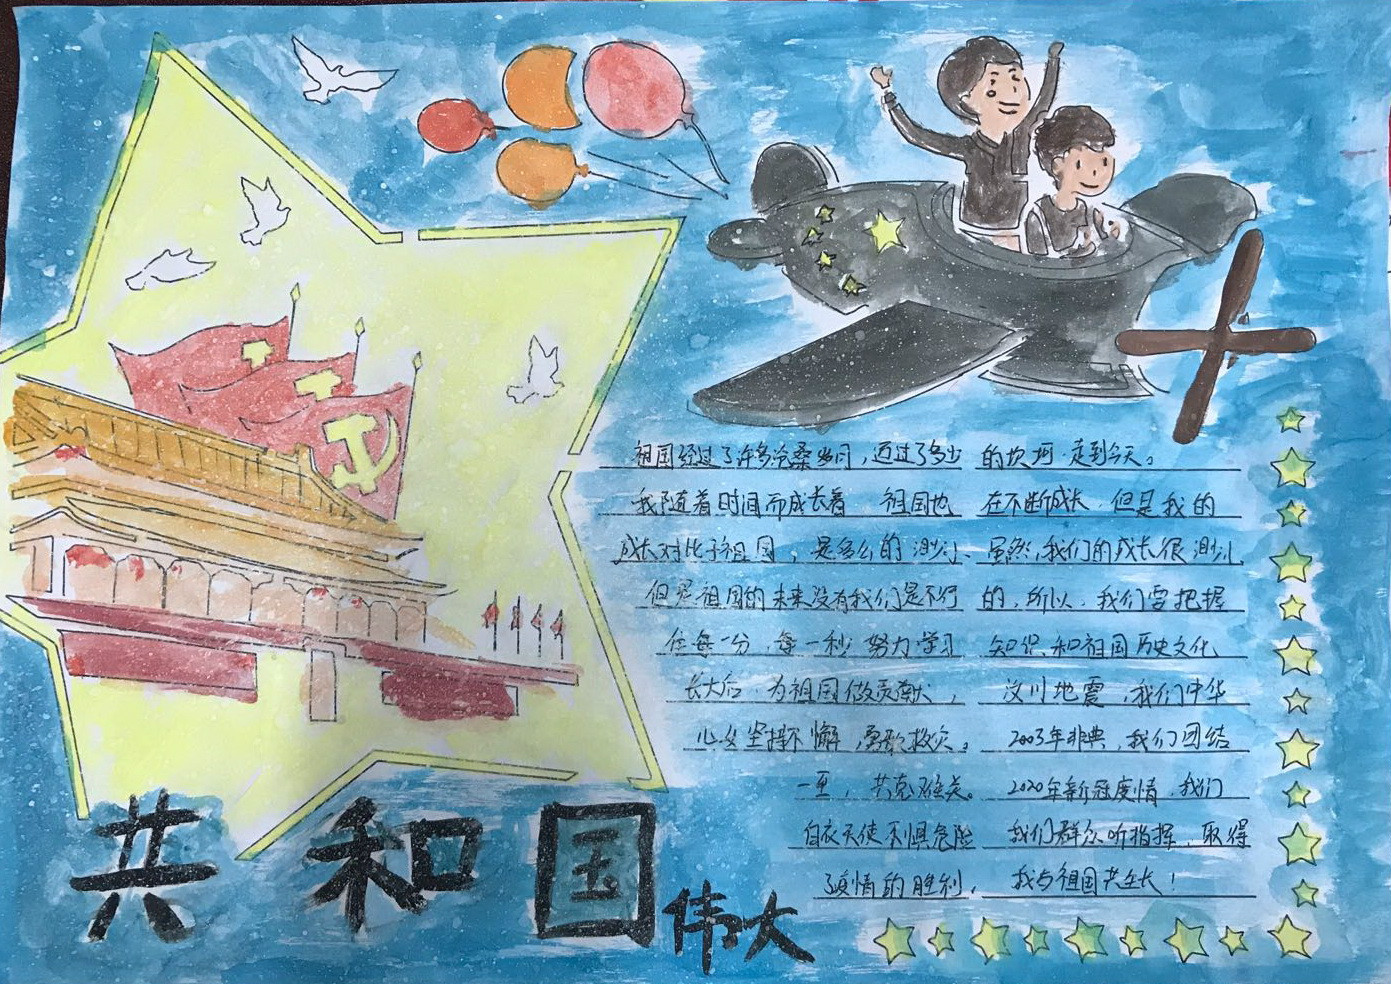 祖国经过了许多沧桑岁月，迈过了多少的坎坷走到今天。
我随着时间而成长着 祖国也在不断成长 但是我的
成长对比于祖国，是多么的渺小 虽然，我们的成长很渺小
但是祖国的未来没有我们是不行的，所以，我们要把握
住每一分，每一秒 努力学习 知识 和祖国历史文化
长大后 为祖国做贡献， 汶川地震，我们中华
儿女坚持不懈，勇敢救灾。 2003年非典，我们团结
一至，共克难关。 2020年新冠疫情，我们
白衣天使不惧危险 我们群众听指挥，取得
了疫情的胜利， 我与祖国共生长！
共和国
伟大